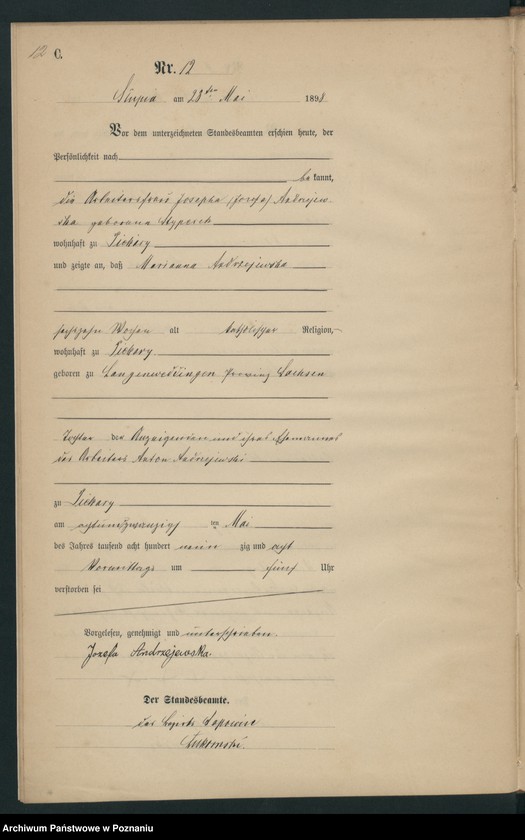 12 C.
Nr. 12
Słupia am 28ten Mai 1898.
Vor dem unterzeichneten Standesbeamten erschien heute, der
Persönlichkeit nach
be kannt,
die Arbeiterfrau Josepha (Jozefa) Andrzejew-
ska geborene
wohnhaft zu Piekary
und zeigte an, daß Marianna Andrzejewska
sechszehn Wochen alt katholischer Religion,
wohnhaft zu Piekary
geboren zu Langenweddingen Provinz Sachsen
Tochter der Anzeigenden und ihres Ehemannes
des Arbeiters Anton Andrzejewski
zu Piekary
am achtundzwanzigs ten Mai
des Jahres tausend acht hundert neun zig und acht
Vormittags um fünf Uhr
verstorben sei
Vorgelesen, genehmigt und unterschrieben.
Jozefa Andrzejewska.
Der Standesbeamte.
des Bezirks
Archiwum Państwowe w Poznaniu